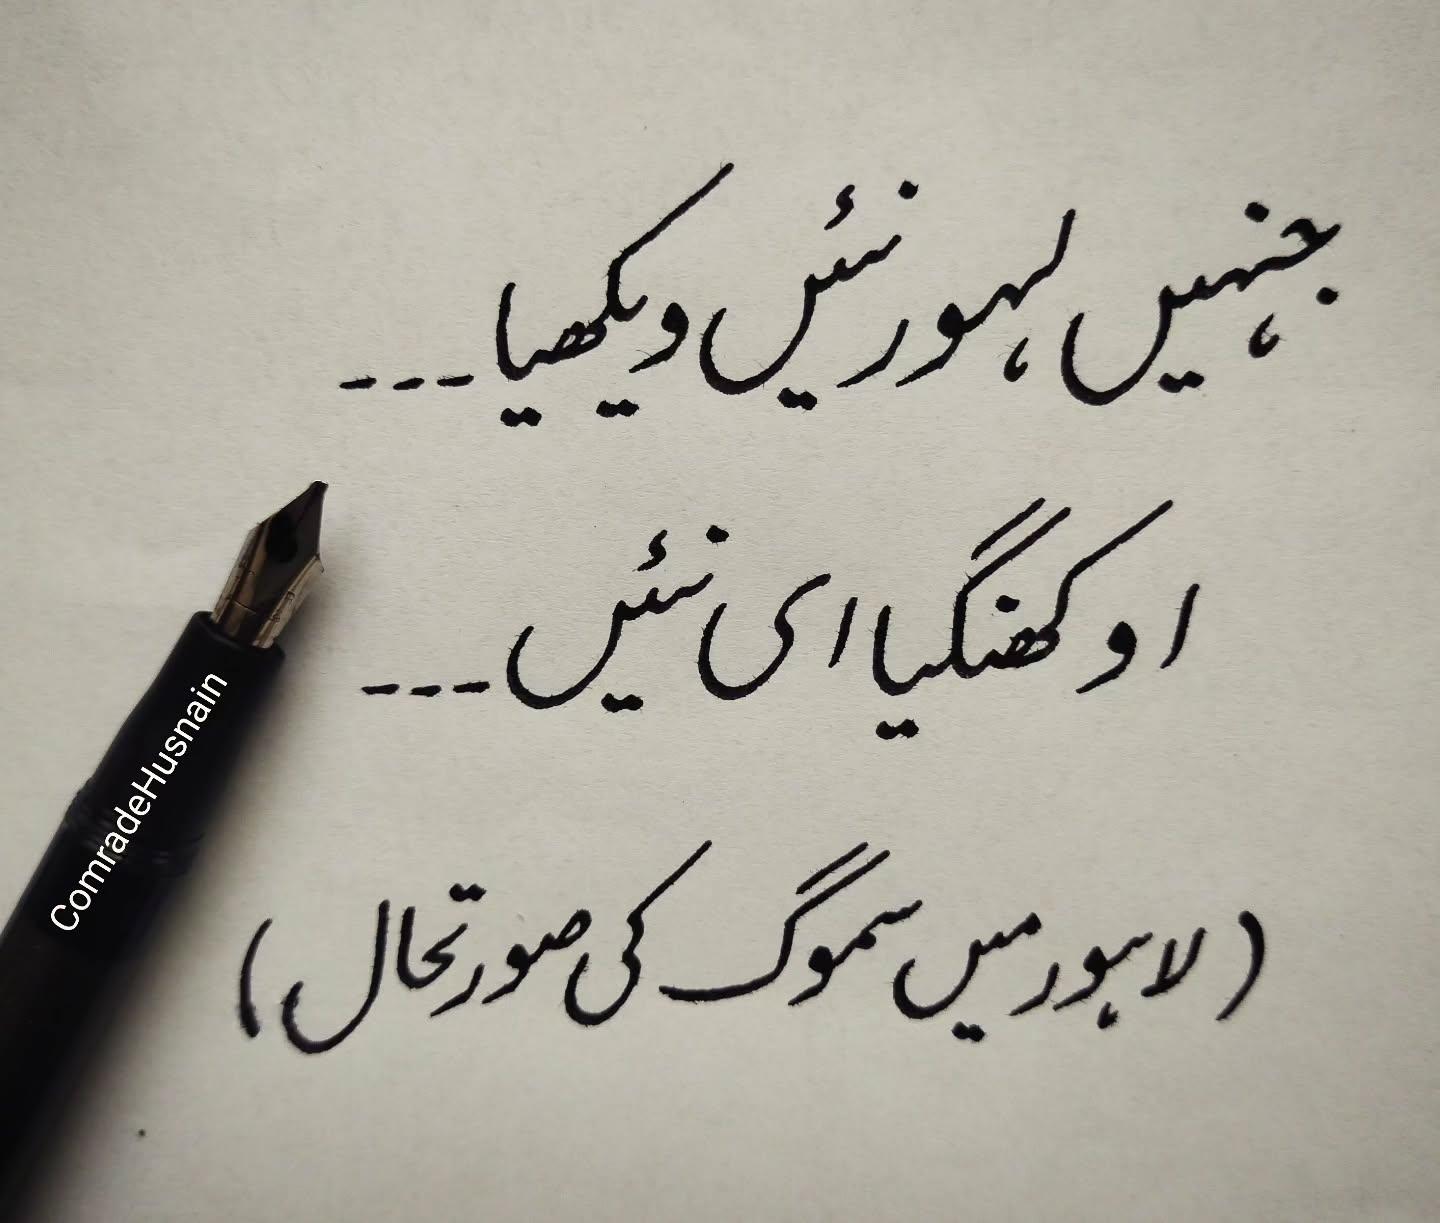 جنہیں لہور نئیں ویکھیا---
او کھنگیا ای نئیں---
(لاہور میں سموگ کی صورتحال)
ComradeHusnain